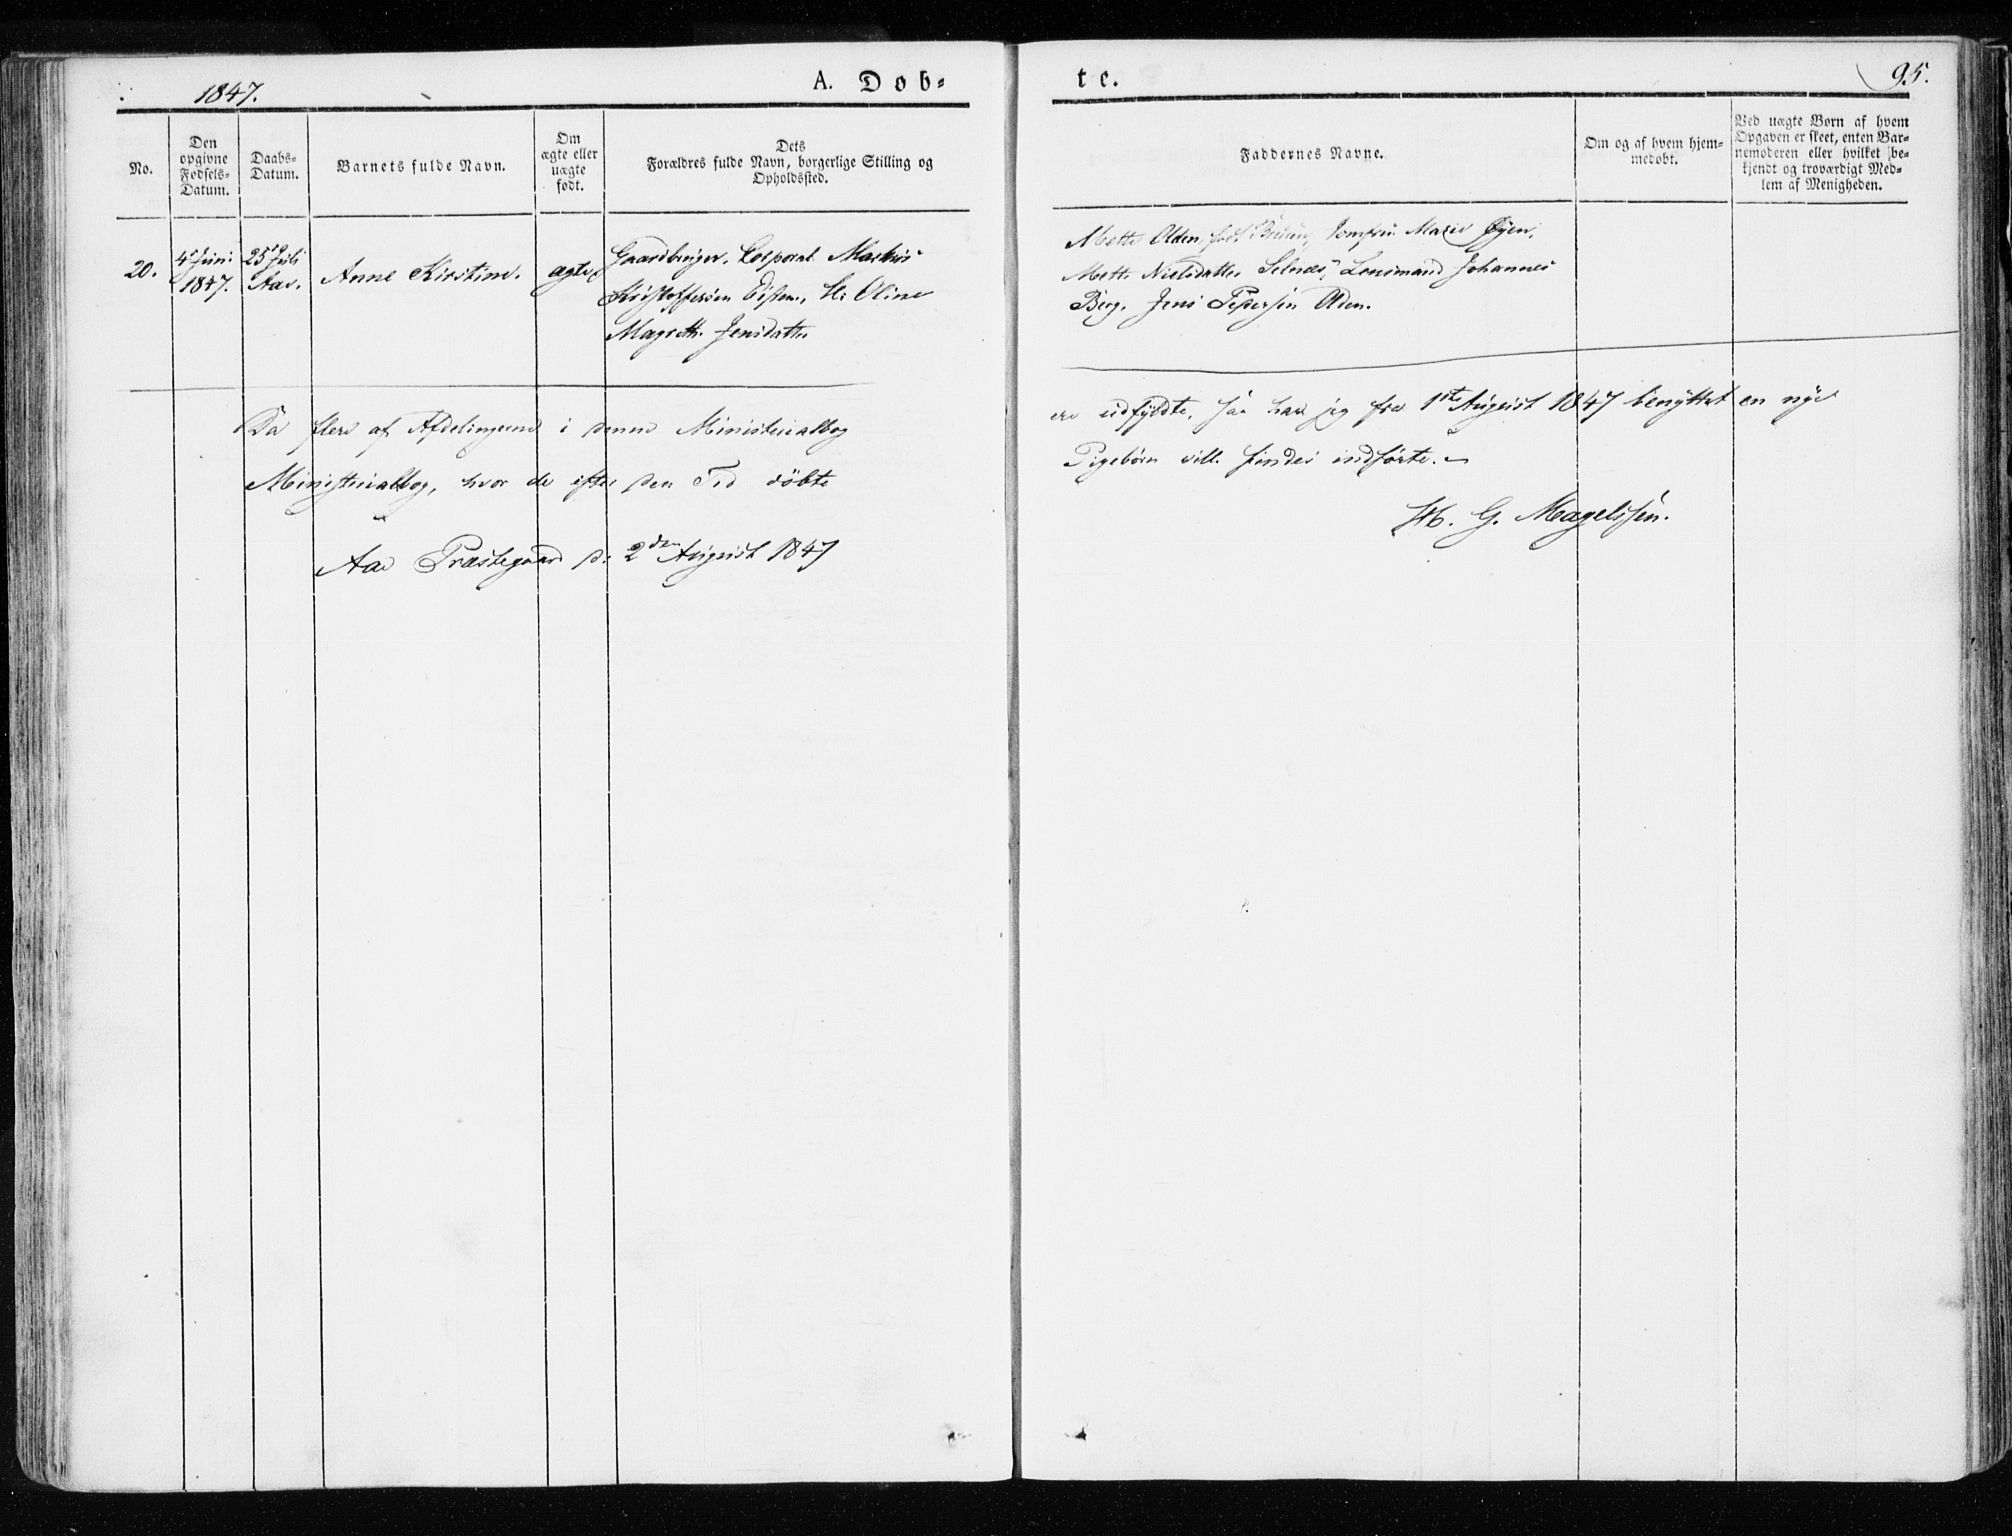 1847.
A. Døb-
te.
95.
No.
Den
opgivne
Fødsels-
Datum.
Daabs-
Datum.
Barnets fulde Navn.
Om
ægte eller
uægte
født.
Dets
Forældres fulde Navn, borgerlige Stilling og
Opholdssted.
Faddernes Navne.
Om og af hvem hjem-
medøbt.
Ved uægte Børn af hvem
Opgaven er skeet, enten Bar-
nemoderen eller hvilket be-
kjendt og troværdigt Med-
lem af Menigheden.
20.
4 Juni
1847.
25 Juli
Aae.
Anne Kirstine.
ægte
Gaardbruger, Corporal Markus
Kristoffersen H: Oline
Magreth Jensdatter
Mette Olden, Jomfru Marie Øyen,
Mette Nielsdatter Selnes, Lensmand Johannes
Berg, Jens Pedersen Olden.
Da flere af Afdelingerne i denne Ministerialbog
ere udfyldte, saa har jeg fra 1ste August 1847 benyttet en nye
Ministerialbog, hvor de efter den Tid döbte
Pigebörn ville findes indförte.
Aae Præstegaard d: 2den August 1847
H. G. Magelssen.